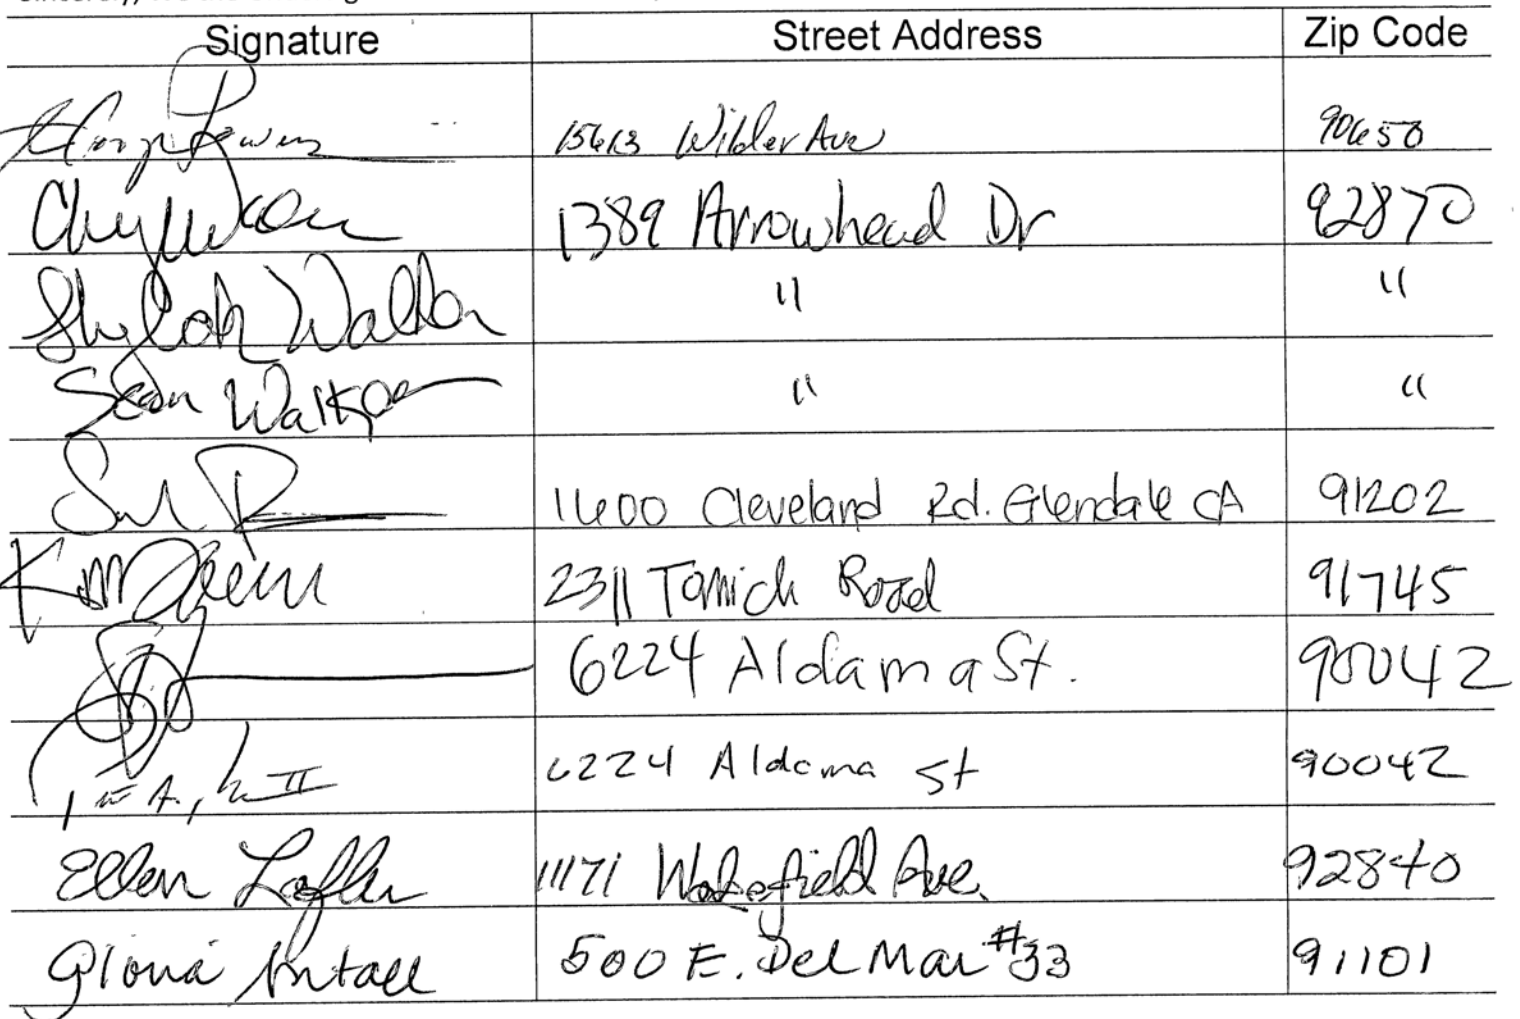 Signature Street Address Zip Code
15613 Wilder Ave 90650
1389 Arrowhead Dr 92870
Shylah Walker " "
Sean Walker " "
1600 Cleveland Rd. Glendale CA 91202
Kim 2311 Tomich Road 91745
6224 Aldama St. 90042
II 6224 Aldama St 90042
Ellen Lofler 11171 Wakefield Ave. 92840
Gloria 500 E. Del Mar #33 91101